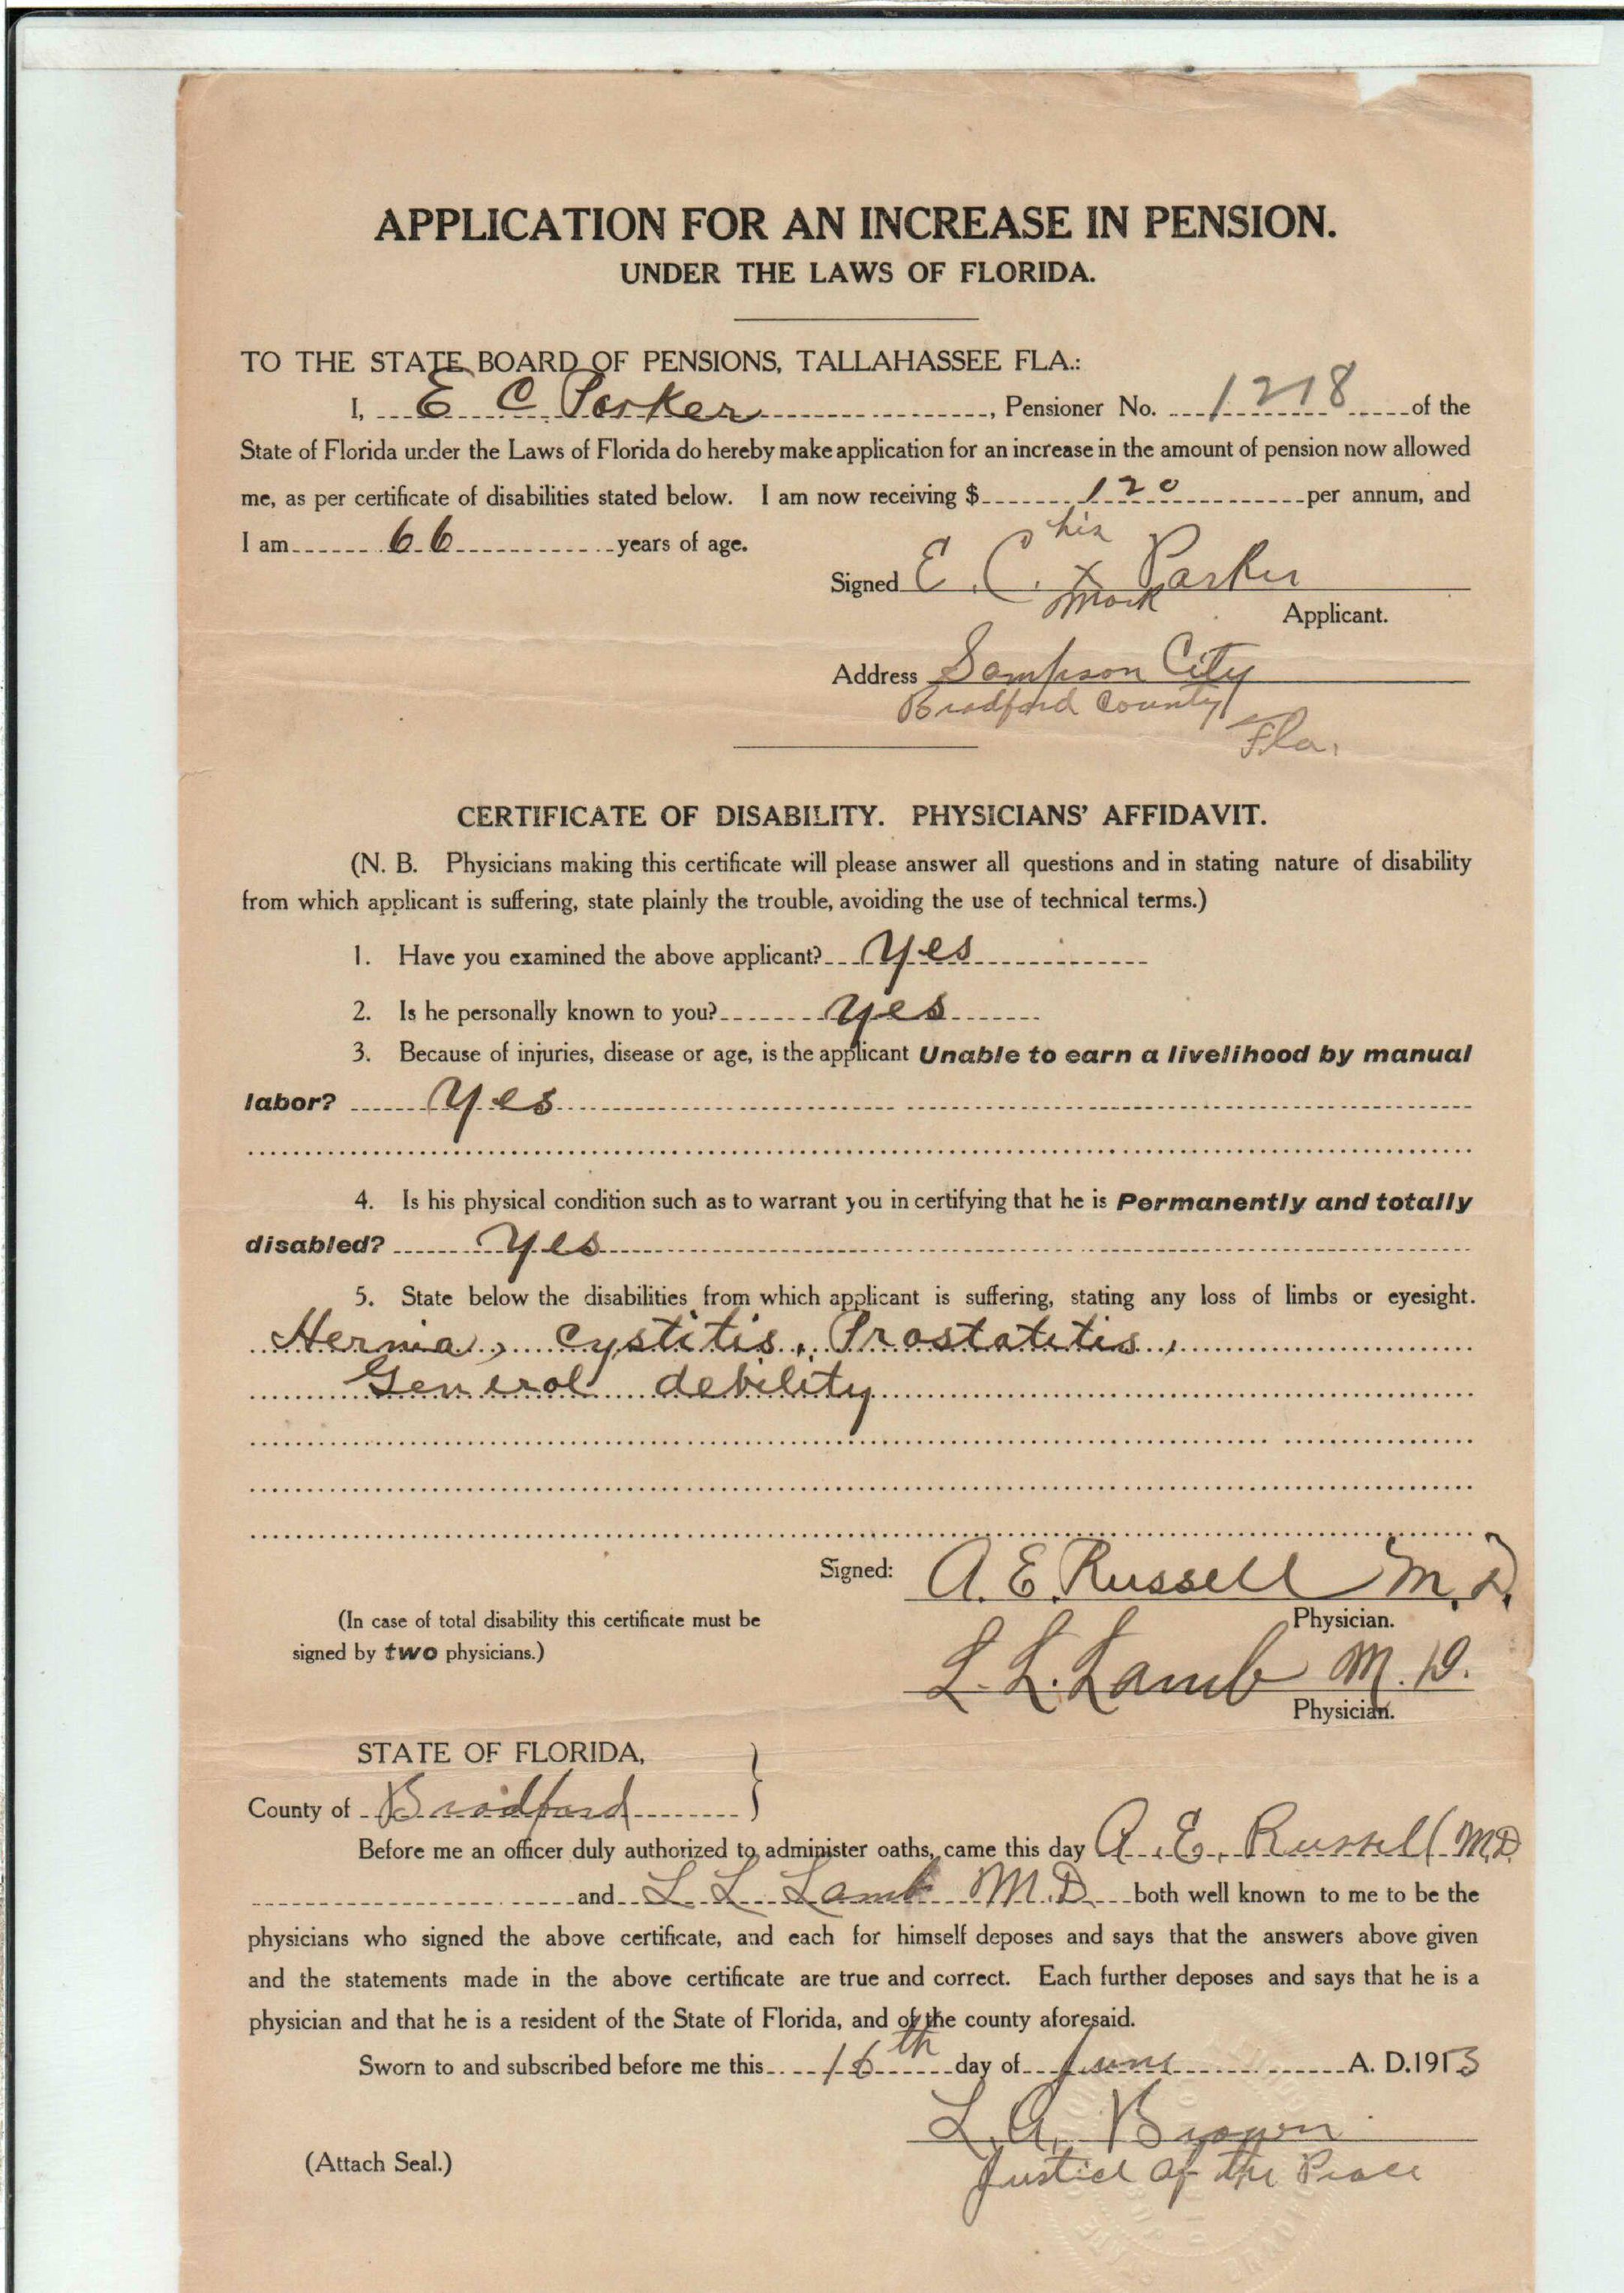 APPLICATION FOR AN INCREASE IN PENSION.
UNDER THE LAWS OF FLORIDA.
TO THE STATE BOARD OF PENSIONS, TALLAHASSEE FLA.:
I, E C Parker, Pensioner No. 1218 of the
State of Florida under the Laws of Florida do hereby make application for an increase in the amount of pension now allowed
me, as per certificate of disabilities stated below. I am now receiving $ 120 per annum, and
I am 66 years of age.
his
Signed E. C. x Parker
mark
Applicant.
Address Sampson City
Bradford County
Fla.
CERTIFICATE OF DISABILITY. PHYSICIANS' AFFIDAVIT.
(N. B. Physicians making this certificate will please answer all questions and in stating nature of disability
from which applicant is suffering, state plainly the trouble, avoiding the use of technical terms.)
1. Have you examined the above applicant? Yes
2. Is he personally known to you? Yes
3. Because of injuries, disease or age, is the applicant Unable to earn a livelihood by manual
labor? Yes
4. Is his physical condition such as to warrant you in certifying that he is Permanently and totally
disabled? Yes
5. State below the disabilities from which applicant is suffering, stating any loss of limbs or eyesight.
Hernia, Cystitis, Prostatitis,
General debility
Signed: A. E. Russell M. D.
Physician.
(In case of total disability this certificate must be
signed by two physicians.)
L. L. Lamb M. D.
Physician.
STATE OF FLORIDA,
County of Bradford
Before me an officer duly authorized to administer oaths, came this day A. E. Russell M.D
and L L Lamb M.D. both well known to me to be the
physicians who signed the above certificate, and each for himself deposes and says that the answers above given
and the statements made in the above certificate are true and correct. Each further deposes and says that he is a
physician and that he is a resident of the State of Florida, and of the county aforesaid.
Sworn to and subscribed before me this 16th day of June A. D. 1913
L. A. Brown
(Attach Seal.)
Justice of the Peace